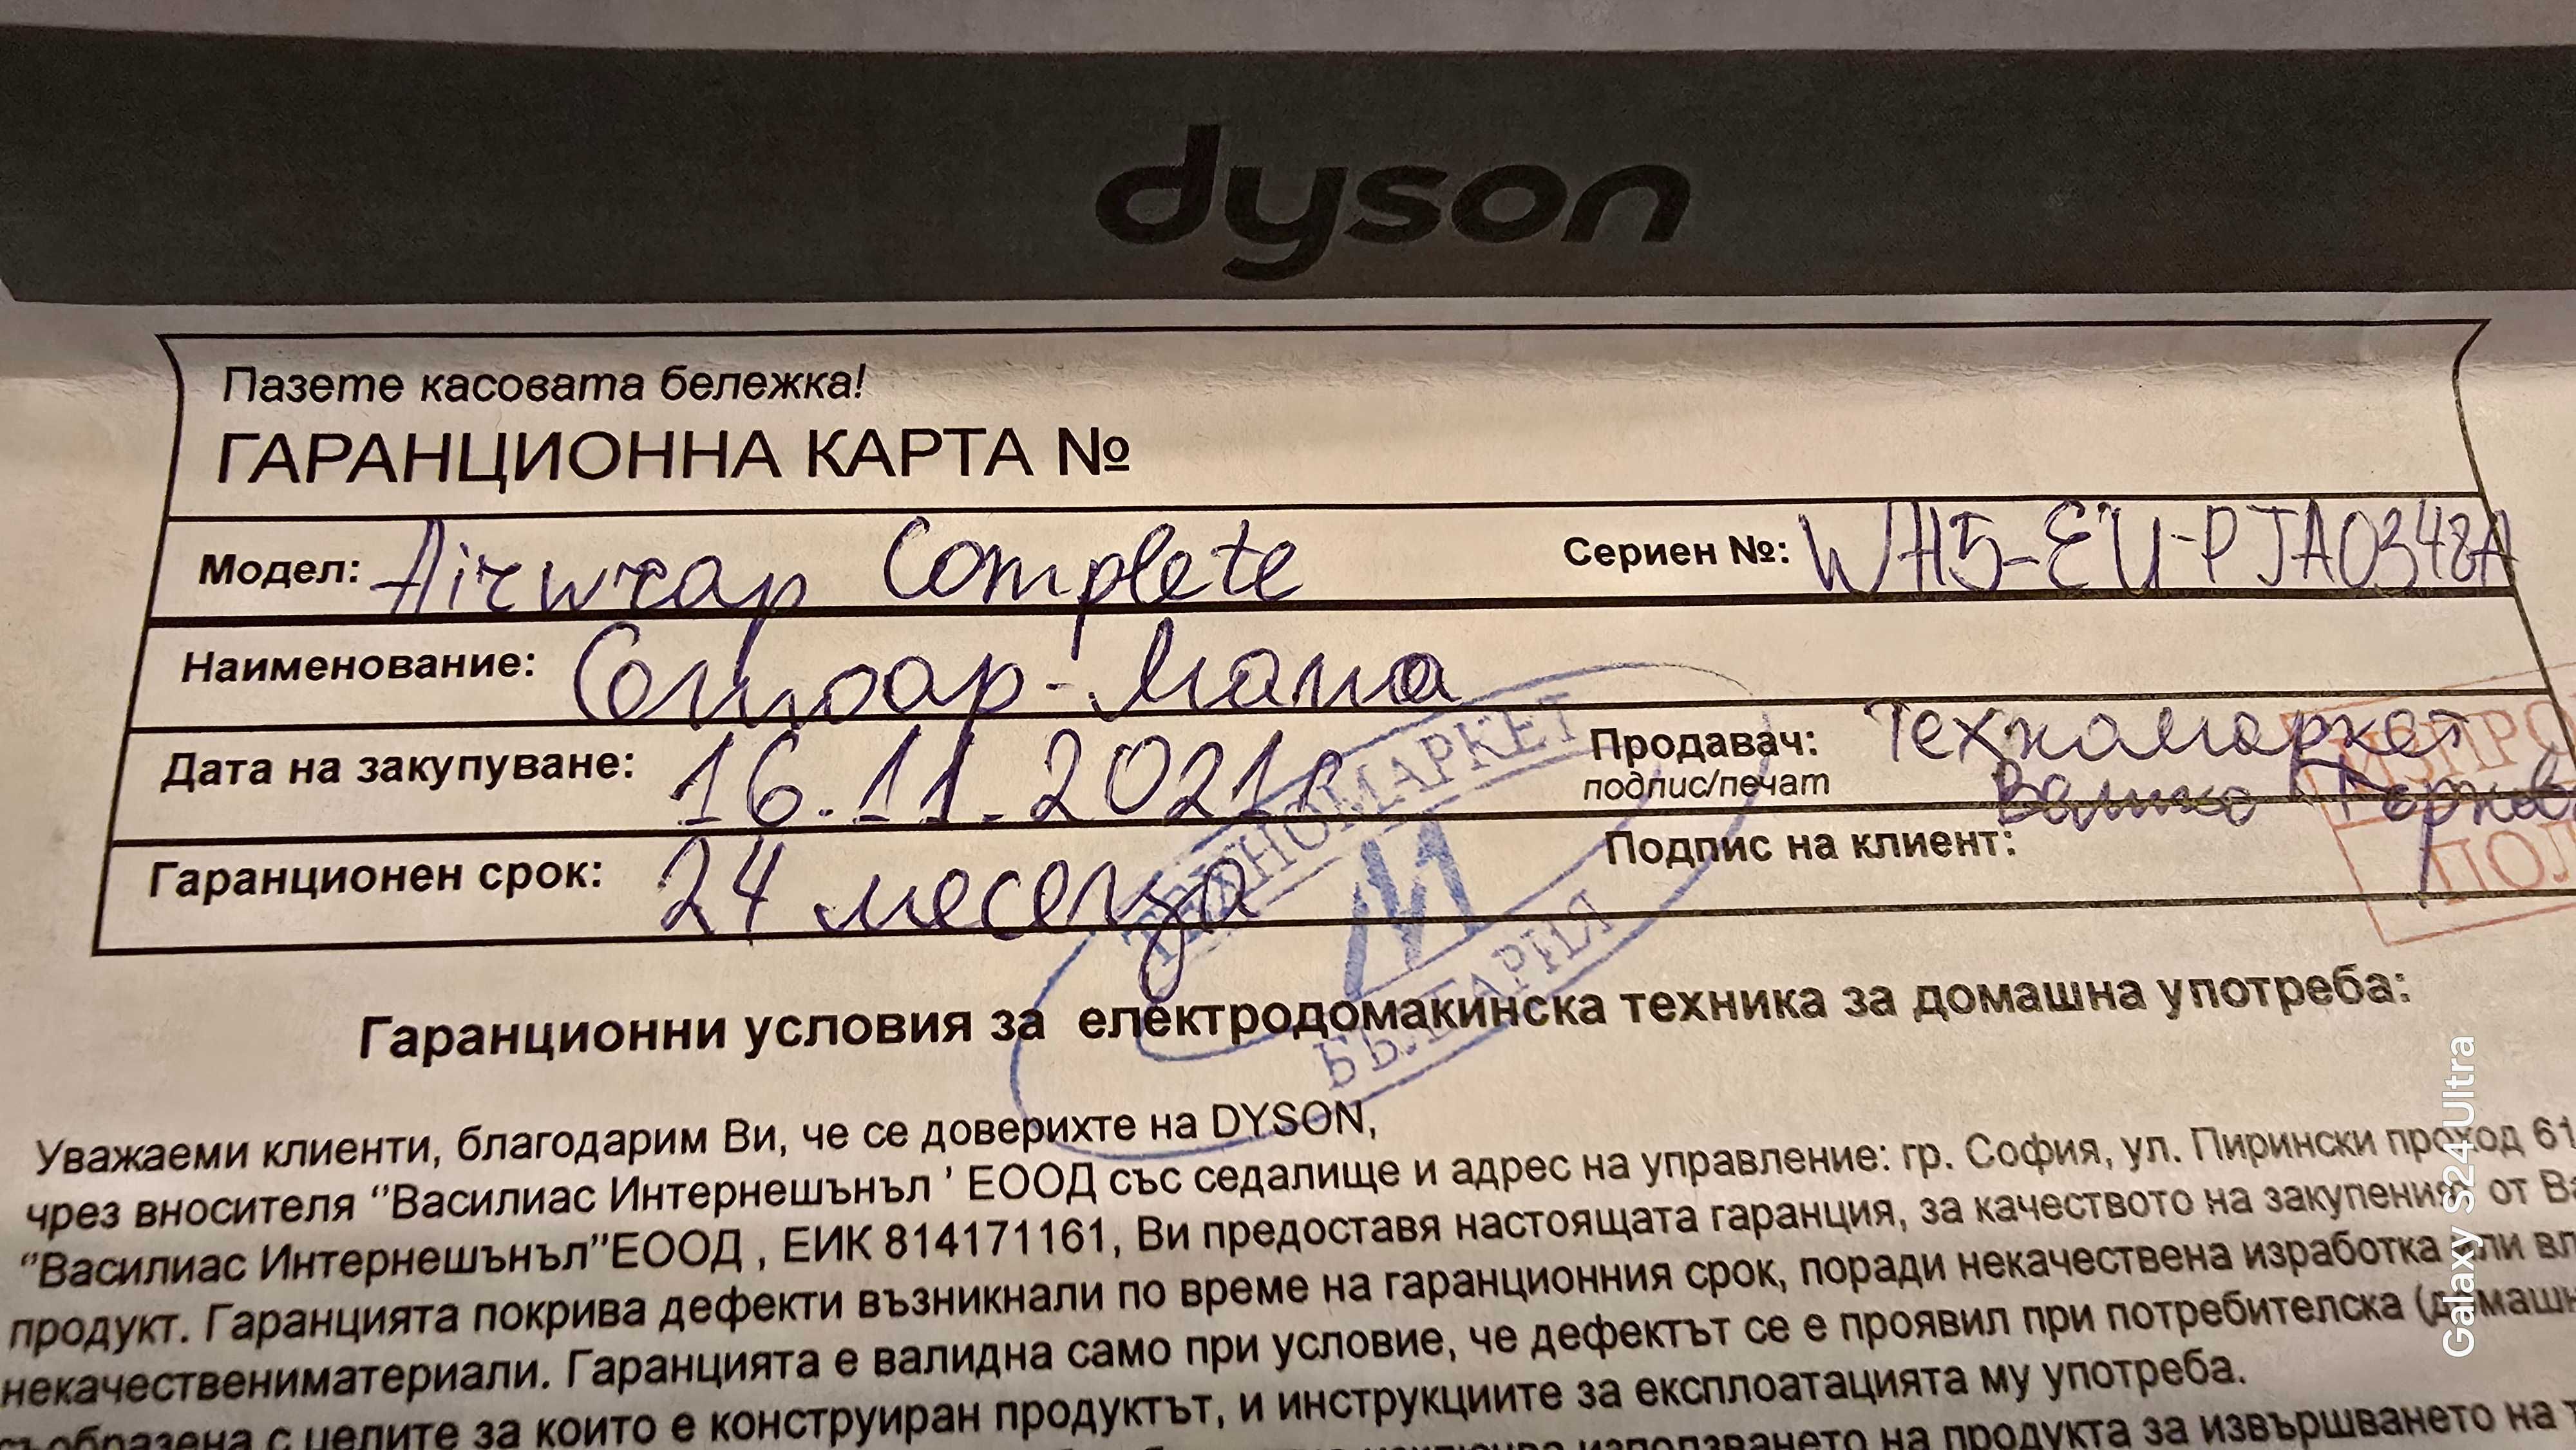 dyson
Пазете касовата бележка!
ГАРАНЦИОННА КАРТА №
Модел: Airwrap Complete Сериен №: WH5-EU-PJA0348A
Наименование: Сешоар-Маша
Дата на закупуване: 16.11.2021г Продавач: Техномаркет
подпис/печат
Подпис на клиент:
Гаранционен срок: 24 месеца
ТЕХНОМАРКЕТ
БЪЛГАРИЯ
БЪЛГАРИЯ
Гаранционни условия за електродомакинска техника за домашна употреба:
Уважаеми клиенти, благодарим Ви, че се доверихте на DYSON,
чрез вносителя "Василиас Интернешънъл ' ЕООД със седалище и адрес на управление: гр. София, ул. Пирински проход 61
"Василиас Интернешънъл"ЕООД , ЕИК 814171161, Ви предоставя настоящата гаранция, за качеството на закупения от
продукт. Гаранцията покрива дефекти възникнали по време на гаранционния срок, поради некачествена изработка или
некачествениматериали. Гаранцията е валидна само при условие, че дефектът се е проявил при потребителска
съобразена с целите за които е конструиран продуктът, и инструкциите за експлоатацията му употреба.
използването на продукта за извършването на
Galaxy S24 Ultra